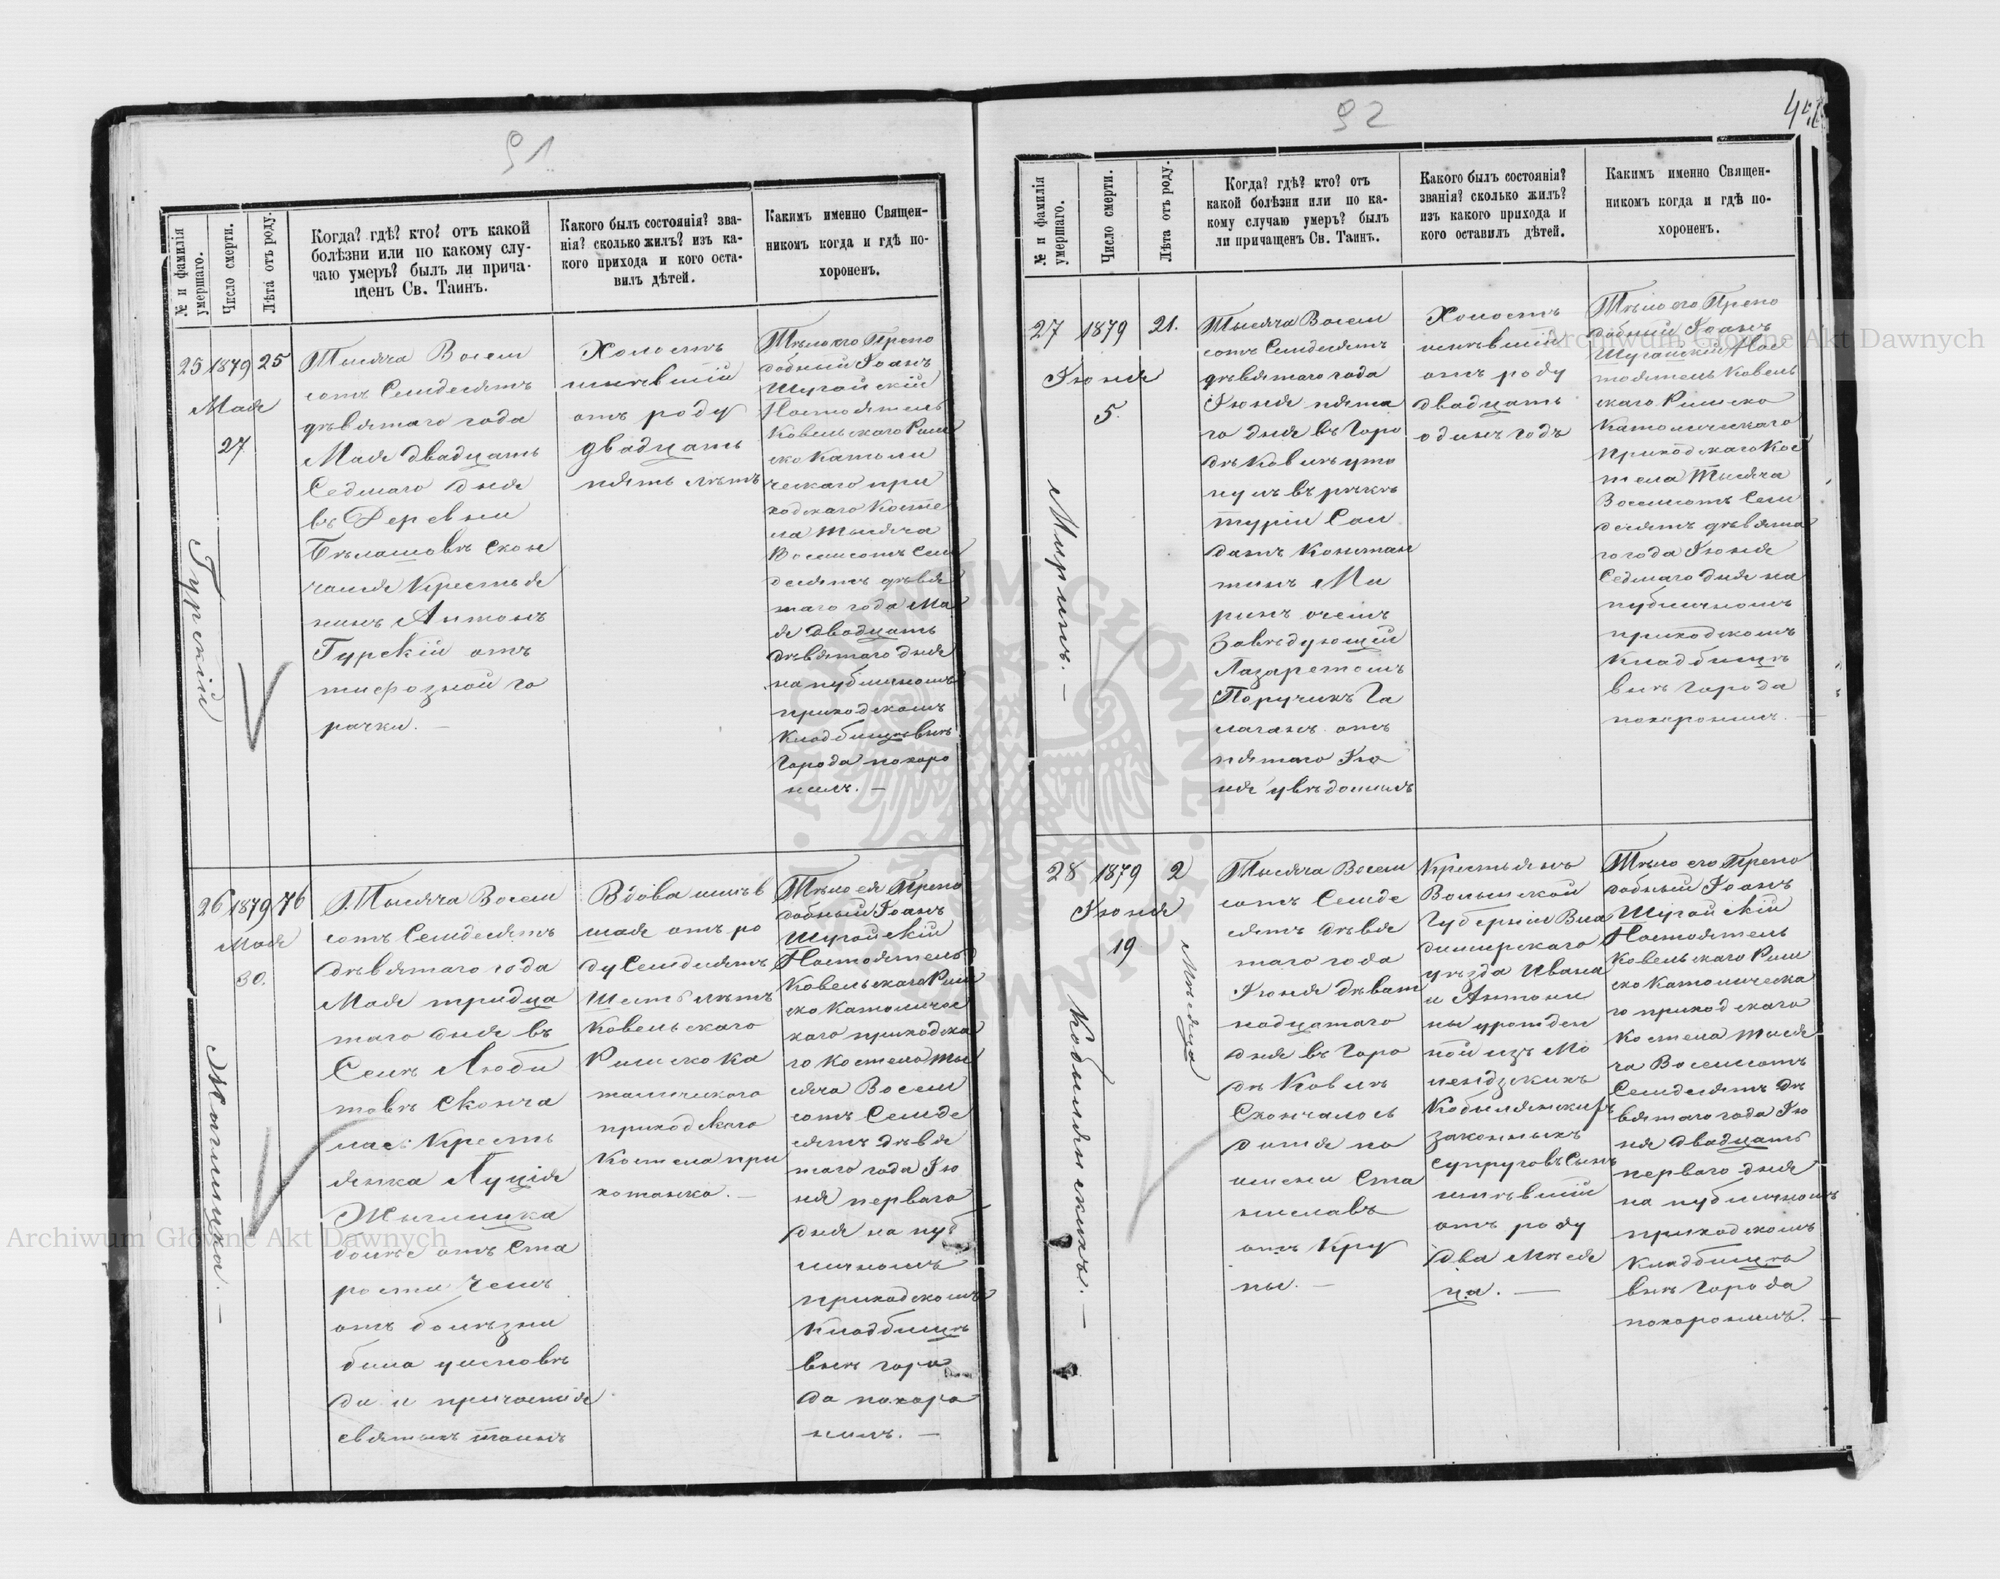 91
№ и фамилія умершаго.
Число смерти.
Лѣта отъ роду.
Когда? гдѣ? кто? отъ какой
болѣзни или по какому слу-
чаю умеръ? былъ ли прича-
щенъ Св. Таинъ.
Какого былъ состоянія? зва-
нія? сколько жилъ? изъ ка-
кого прихода и кого оста-
вилъ дѣтей.
Какимъ именно Священ-
никомъ когда и гдѣ по-
хороненъ.
25
1879
Мая
27
25
Гурскій
Тысяча Восем
сотъ Семдесятъ
дѣвятаго года
Мая двадцать
Седмаго дня
въ Деревни
Бѣлашовѣ скон
чался Крестья
нинъ Антонъ
Гурскій отъ
тифозной го
рачки. —
Холостъ
имѣвшій
отъ роду
двадцать
пять лѣтъ
Тѣло его Препо
добный Іоанъ
Шугайскій
Настоятель
Ковельскаго Рим
ско Католи
ческаго при
ходскаго Косте
ла Тысяча
Восемсотъ Сем
десятъ дѣвя
таго года Ма
я двадцать
дѣвятаго дня
на публичномъ
приходскомъ
Кладбищѣ внѣ
города похоро
нилъ. —
26
1879
Мая
30.
76
Жыглицка. —
Тысяча Восем
сотъ Семдесятъ
дѣвятаго года
Мая тридца
таго дня въ
Селѣ Люби
товѣ Сконча
лась Кресть
янка Луція
Жыглицка
болѣе отъ Ста
рости чемъ
отъ болѣзни
била у исповѣ
ди и причастія
святыхъ таинъ
Вдова имѣв
шая отъ ро
ду Семдесятъ
Шесть лѣтъ
Ковельскаго
Римско Ка
толическаго
приходскаго
Костела при
хожанка. —
Тѣло ея Препо
добный Іоанъ
Шугайскій
Настоятель
Ковельскаго Рим
ско Католичес
каго приходска
го Костела Ты
сяча Восем
сотъ Семде
сятъ дѣвя
таго года Ію
ня перваго
дня на пуб
личномъ
приходскомъ
Кладбищѣ
внѣ горо
да похоро
нилъ. —
92
№ и фамилія умершаго.
Число смерти.
Лѣта отъ роду.
Когда? гдѣ? кто? отъ
какой болѣзни или по ка-
кому случаю умеръ? былъ
ли причащенъ Св. Таинъ.
Какого былъ состоянія?
званія? сколько жилъ?
изъ какого прихода и
кого оставилъ дѣтей.
Какимъ именно Священ-
никомъ когда и гдѣ по-
хороненъ.
27
1879
Іюня
5.
21.
Миринъ. —
Тысяча Восем
сотъ Семдесятъ
дѣвятаго года
Іюня пята
го дня въ Горо
дѣ Ковелѣ уто
нулъ въ рѣкѣ
Туріи Сол
датъ Констан
тинъ Ми
ринъ о чемъ
Завѣдующій
Лазаретомъ
Поручикъ Га
лаганъ отъ
пятаго Ію
ня увѣдомилъ
Холостъ
имѣвшій
отъ роду
двадцать
одинъ годъ
Тѣло его Препо
добный Іоанъ
Шугайскій Нас
тоятель Ковель
скаго Римско
Католическаго
Приходскаго Кос
тела Тысяча
Восемсотъ Сем
десятъ дѣвята
го года Іюня
Седмаго дня на
публичномъ
приходскомъ
Кладбищѣ
внѣ Города
похоронилъ. —
28
1879
Іюня
19
2
мѣсяца
Кобылянскихъ. —
Тысяча Восем
сотъ Семде
сятъ дѣвя
таго года
Іюня дѣват
надцатаго
дня въ Горо
дѣ Ковелѣ
Скончалось
дитя по
имени Ста
ниславъ
отъ Кру
пы. —
Крестьянъ
Волынской
Губерніи Вла
димирскаго
уѣзда Ивана
и Антони
ны урожден
ной изъ Мо
Кобылянскихъ
законныхъ
супруговъ Сынъ
имѣвшій
отъ роду
два мѣся
ца. —
Тѣло его Препо
добный Іоанъ
Шугайскій
Настоятель
Ковельскаго Рим
ско Католическа
го приходскаго
Костела Тыся
ча Восемсотъ
Семдесятъ дѣ
вятаго года Ію
ня двадцать
перваго дня
на публичномъ
приходскомъ
Кладбищѣ
внѣ Города
похоронилъ. —
Archiwum Główne Akt Dawnych
Archiwum Główne Akt Dawnych